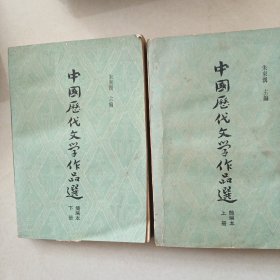 朱東潤 主編
中國歷代文学作品選
簡編本
下册
朱東潤 主編
中國歷代文学作品選
簡編本
上册